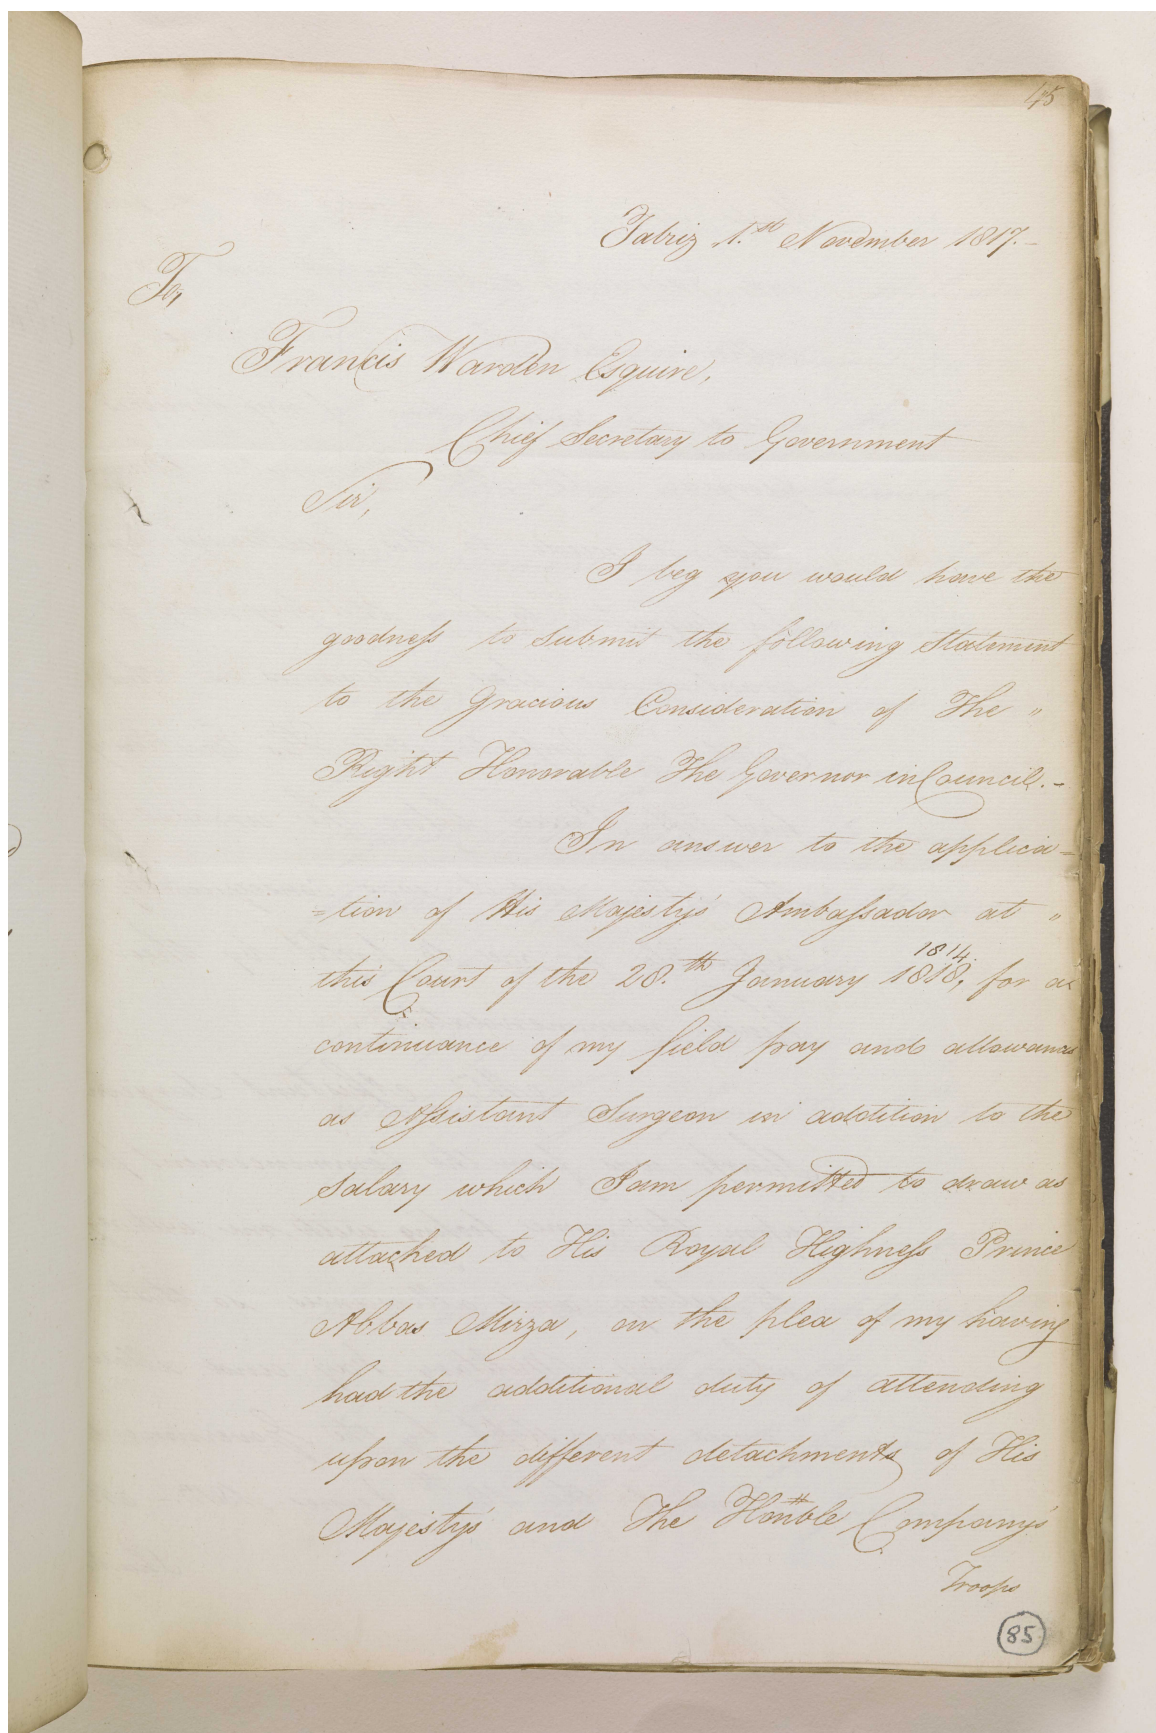 45
Tabriz 1.st November 1817.-
To,
Francis Warden Esquire,
Chief Secretary to Government
Sir,
I beg you would have the
goodness to submit the following Statement
to the Gracious Consideration of The "
Right Honorable The Governor in Council.-
In answer to the applica=
=tion of His Majesty's Ambassador at "
1814.
this Court of the 28.th January 1818, for a
continuance of my field pay and allowances
as Assistant Surgeon in addition to the
Salary which I am permitted to draw as
attached to His Royal Highness Prince
Abbas Mirza, on the plea of my having
had the additional duty of attending
upon the different detachments of His
Majesty's and The Hon'ble Company's
Troops
85